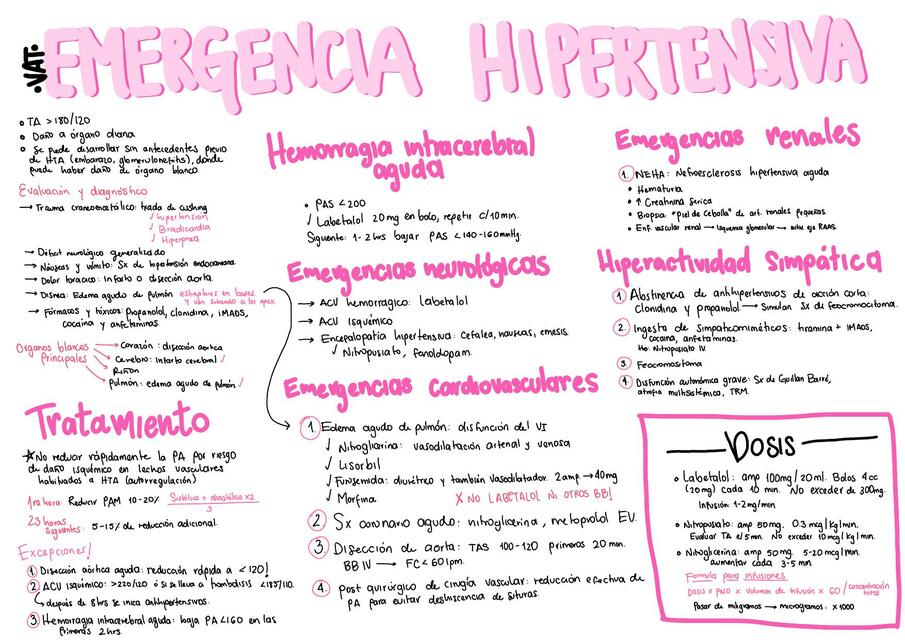 .VAT.
EMERGENCIA HIPERTENSIVA
• TA >180/120
• Daño a órgano diana
• Se puede desarrollar sin antecedentes previo
de HTA (embarazo, glomerulonefritis), donde
puede haber daño de órgano blanco.
Evaluación y diagnóstico
→ Trauma craneoencefálico: triada de cushing
✓ hipertensión
✓ Bradicardia
✓ Hiperpnea
→ Déficit neurológico generalizado
→ Náuseas y vómito: Sx de hipertensión endocraneana
→ Dolor toracico: infarto o disección aorta
→ Disnea: Edema agudo de pulmón estertores en bases
y van subando a los apex.
→ Fármacos y tóxicos: propanolol, clonidina, IMAOS,
cocaína y anfetaminas.
Organos blancos
Principales
→ Corazón: disección aórtica
→ Cerebro: Infarto cerebral ✓
→ Riñón
Pulmón: edema agudo de pulmón ✓
Tratamiento
★No reducir rápidamente la PA por riesgo
de daño isquémico en lechos vasculares
habituados a HTA (autorregulación)
1ra hora: Reducir PAM 10-20% Sistólica + diastólica x2
3
23 horas
siguientes: 5-15% de reducción adicional.
Excepciones!
① Disección aórtica aguda: reducción rápida a <120!
② ACV isquémico: >220/120 ó si se lleva a trombolisis <185/110.
↳ después de 8hrs se inicia antihipertensivos.
③ Hemorragia intracerebral aguda: baja PA<160 en las
Primeras 2hrs.
Hemorragia intracerebral
aguda
• PAS <200
✓ Labetalol 20mg en bolo, repetir c/10min.
Siguente: 1-2 hrs bajar PAS <140-160mmHg.
Emergencias neurológicas
→ ACV hemorragico: labetalol
→ ACV Isquémico
→ Encefalopatia hipertensiva: cefalea, nauseas, emesis.
✓ Nitroprusiato, fenoldopam.
Emergencias cardiovasculares
① Edema agudo de pulmón: disfunción del VI
✓ Nitroglicerina: vasodilatación arterial y venosa
✓ Lisorbil
✓ Furosemida: diurético y también vasodilatador. 2amp →40mg
✓ Morfina X NO LABETALOL NI OTROS BB!
② Sx coronario agudo: nitroglicerina, metoprolol EV.
③ Disección de aorta: TAS 100-120 primeros 20 min.
BB IV → FC <60lpm.
④ Post quirúrgico de cirugía vascular: reducción efectiva de
PA para evitar deshiscencia de suturas.
Emergencias renales
① NEHA: Nefroesclerosis hipertensiva aguda
• Hematuria
• ↑ Creatinina sérica
• Biopsia: "piel de Cebolla" de art. renales pequeñas.
• Enf. vascular renal → Isquemia glomerular → activ eje RAAS.
Hiperactividad Simpática
① Abstinencia de antihipertensivos de acción corta:
Clonidina y propanolol → Simulan Sx de feocromocitoma.
② Ingesta de simpaticomiméticos: tiramina + IMAOS,
cocaína, anfetaminas.
tto: Nitroprusiato IV.
③ Feocromositoma
④ Disfunción autonómica grave: Sx de Guillan Barré,
atrofia multisistémica, TRM.
Dosis
• Labetalol: amp 100mg/20ml. Bolos 4cc
(20mg) cada 10 min. No exceder de 300mg.
Infusión 1-2mg/min
• Nitroprusiato: amp 50mg. 0.3 mcg/kg/min.
Evaluar TA c/5 min. No exceder 10mcg/kg/min.
• Nitroglicerina: amp 50mg. 5-20mcg/min.
aumentar cada 3-5 min
Formula para infusiones
Dosis x peso x Volumen de infusión x 60 / concentración
total
Pasar de miligramos → microgramos: x 1000